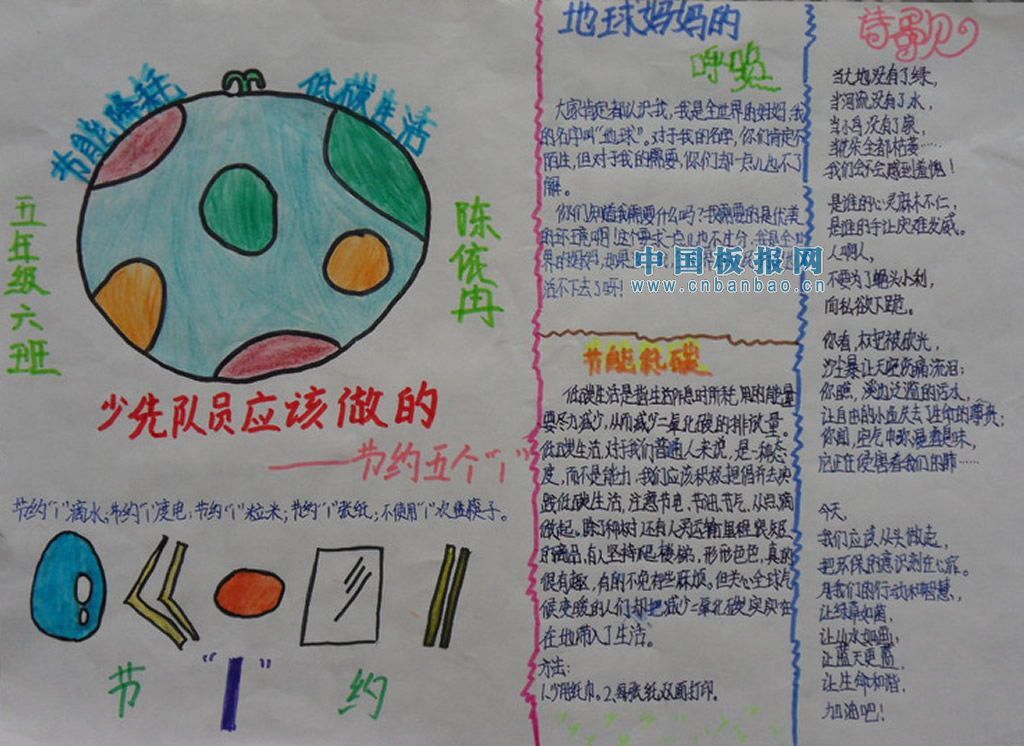 节能降耗
低碳生活
五年级六班
陈依冉
少先队员应该做的
——节约五个“1”
节约“1”滴水;节约“1”度电;节约“1”粒米;节约“1”张纸;不使用“1”次性筷子。
节“1”约
地球妈妈的
呼唤
大家肯定都认识我,我是全世界的妈妈,我
的名字叫“地球”。对于我的名字,你们肯定不
陌生,但对于我的需要,你们却一点儿也不了
解。
你们知道我需要什么吗?我需要的是优美
的环境啊!这个要求一点儿也不过分,我是全世
界的妈妈,如果
活不下去了呀!
中国板报网
www.cnbanbao.cn
节能低碳
低碳生活是指生活作息时所耗用的能量
要尽力减少,从而减少二氧化碳的排放量。
低碳生活,对于我们普通人来说,是一种态
度,而不是能力,我们应该积极提倡并去实
践低碳生活,注意节电、节油、节气,从点滴
做起。除了种树还有人买运输里程很短
的商品,有人坚持爬楼梯,形形色色,真的
很有趣,有的不免有些麻烦。但关心全球气
候变暖的人们却把减少二氧化碳实实在
在地带入了生活。
方法:
1.少用纸巾。2.每张纸双面打印。
诗歌
当大地没有了绿,
当河流没有了水,
当小鸟没有了家,
当花朵全都枯萎……
我们会不会感到羞愧!
是谁的心灵麻木不仁,
是谁的手让灾难发威。
人啊人,
不要为了蝇头小利,
向私欲下跪。
你看,树把被砍光,
沙尘暴让天空伤痛流泪;
你瞧,溪边泛滥的污水,
让自由的小鱼失去了生命的尊贵;
你闻,空气中弥漫着臭味,
它正在侵害着我们的肺……
今天,
我们应该从头做起,
把环保的意识刻在心扉。
用我们的行动和智慧,
让绿草如茵,
让山水如画;
让蓝天更蓝,
让生命和谐,
加油吧!